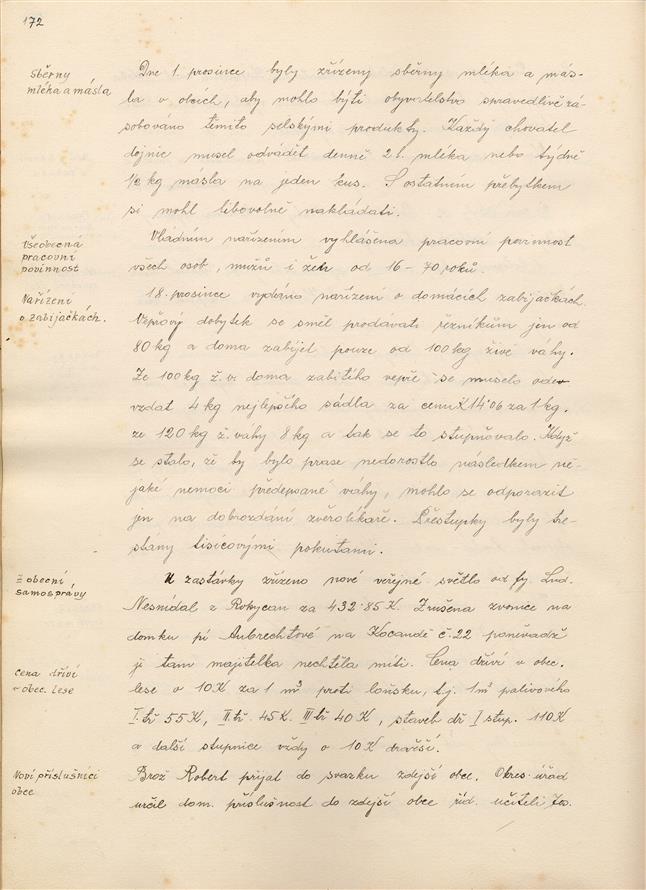 172
Sběrny
mléka a másla
Dne 1. prosince byly zřízeny sběrny mléka a más-
la v obcích, aby mohlo býti obyvatelstvo spravedlivě zá-
sobováno těmito selskými produkty. Každý chovatel
dojnic musel odvádět denně 2 l. mléka nebo týdně
1/2 kg másla na jeden kus. S ostatním přebytkem
si mohl libovolně nakládati.
Všeobecná
pracovní
povinnost
Vládním nařízením vyhlášena pracovní povinnost
všech osob, mužů i žen od 16-70 roků.
Nařízení
o zabijačkách.
18. prosince vydáno nařízení o domácích zabijačkách.
Vepřový dobytek se směl prodávati řezníkům jen od
80 kg a doma zabíjet pouze od 100 kg živé váhy.
Ze 100 kg ž. v. doma zabitého vepře se muselo ode-
vzdat 4 kg nejlepšího sádla za cenu K 14·06 za 1 kg.
ze 120 kg ž. váhy 8 kg a tak se to stupňovalo. Když
se stalo, že by bylo prase nedorostlo následkem ně-
jaké nemoci předepsané váhy, mohlo se odporazit
jen na dobrozdání zvěrolékaře. Přestupky byly tre-
stány tisícovými pokutami.
Z obecní
samosprávy
U zastávky zřízeno nové veřejné světlo od fy. Lud.
Nesnídal z Rokycan za 432·85 K. Zrušena zvonice na
domku pí Aubrechtové na Kocandě č. 22 poněvadž
ji tam majitelka nechtěla míti. Cena dříví v obec.
cena dříví
v obec. lese
lese o 10 K za 1 m³ proti loňsku, t.j. 1 m³ palivového
I. tř 55 K, II. tř. 45 K. III tř 40 K, staveb dř I stup. 110 K
a další stupnice vždy o 10 K dražší.
Noví příslušníci
obce
Brož Robert přijat do svazku zdejší obce. Okres. úřad
určil dom. příslušnost do zdejší obce říd. učiteli Jos.